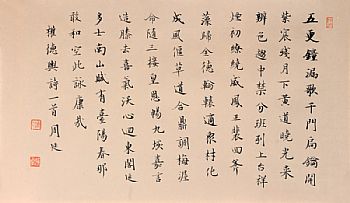 五更鐘漏歇千門扃鑰開
紫宸殘月下黃道曉光來
辨色趨中禁分班列上台祥
煙初繚繞威鳳正裴回斧
藻歸全德輪轅適衆材化
成風偃草道合鼎調梅渥
命隨三接皇恩暢九垓嘉言
造膝去喜氣沃心迴東閣延
多士南山賦有臺陽春那
敢和空此詠康哉
權德輿詩一首 周延